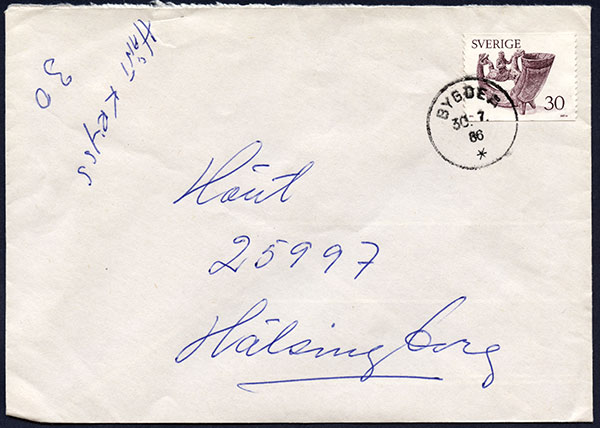 SVERIGE
30
BYGDEÅ
30.-7.
86
*
HÄNT KRYSS
30
Hänt
25997
Hälsingborg